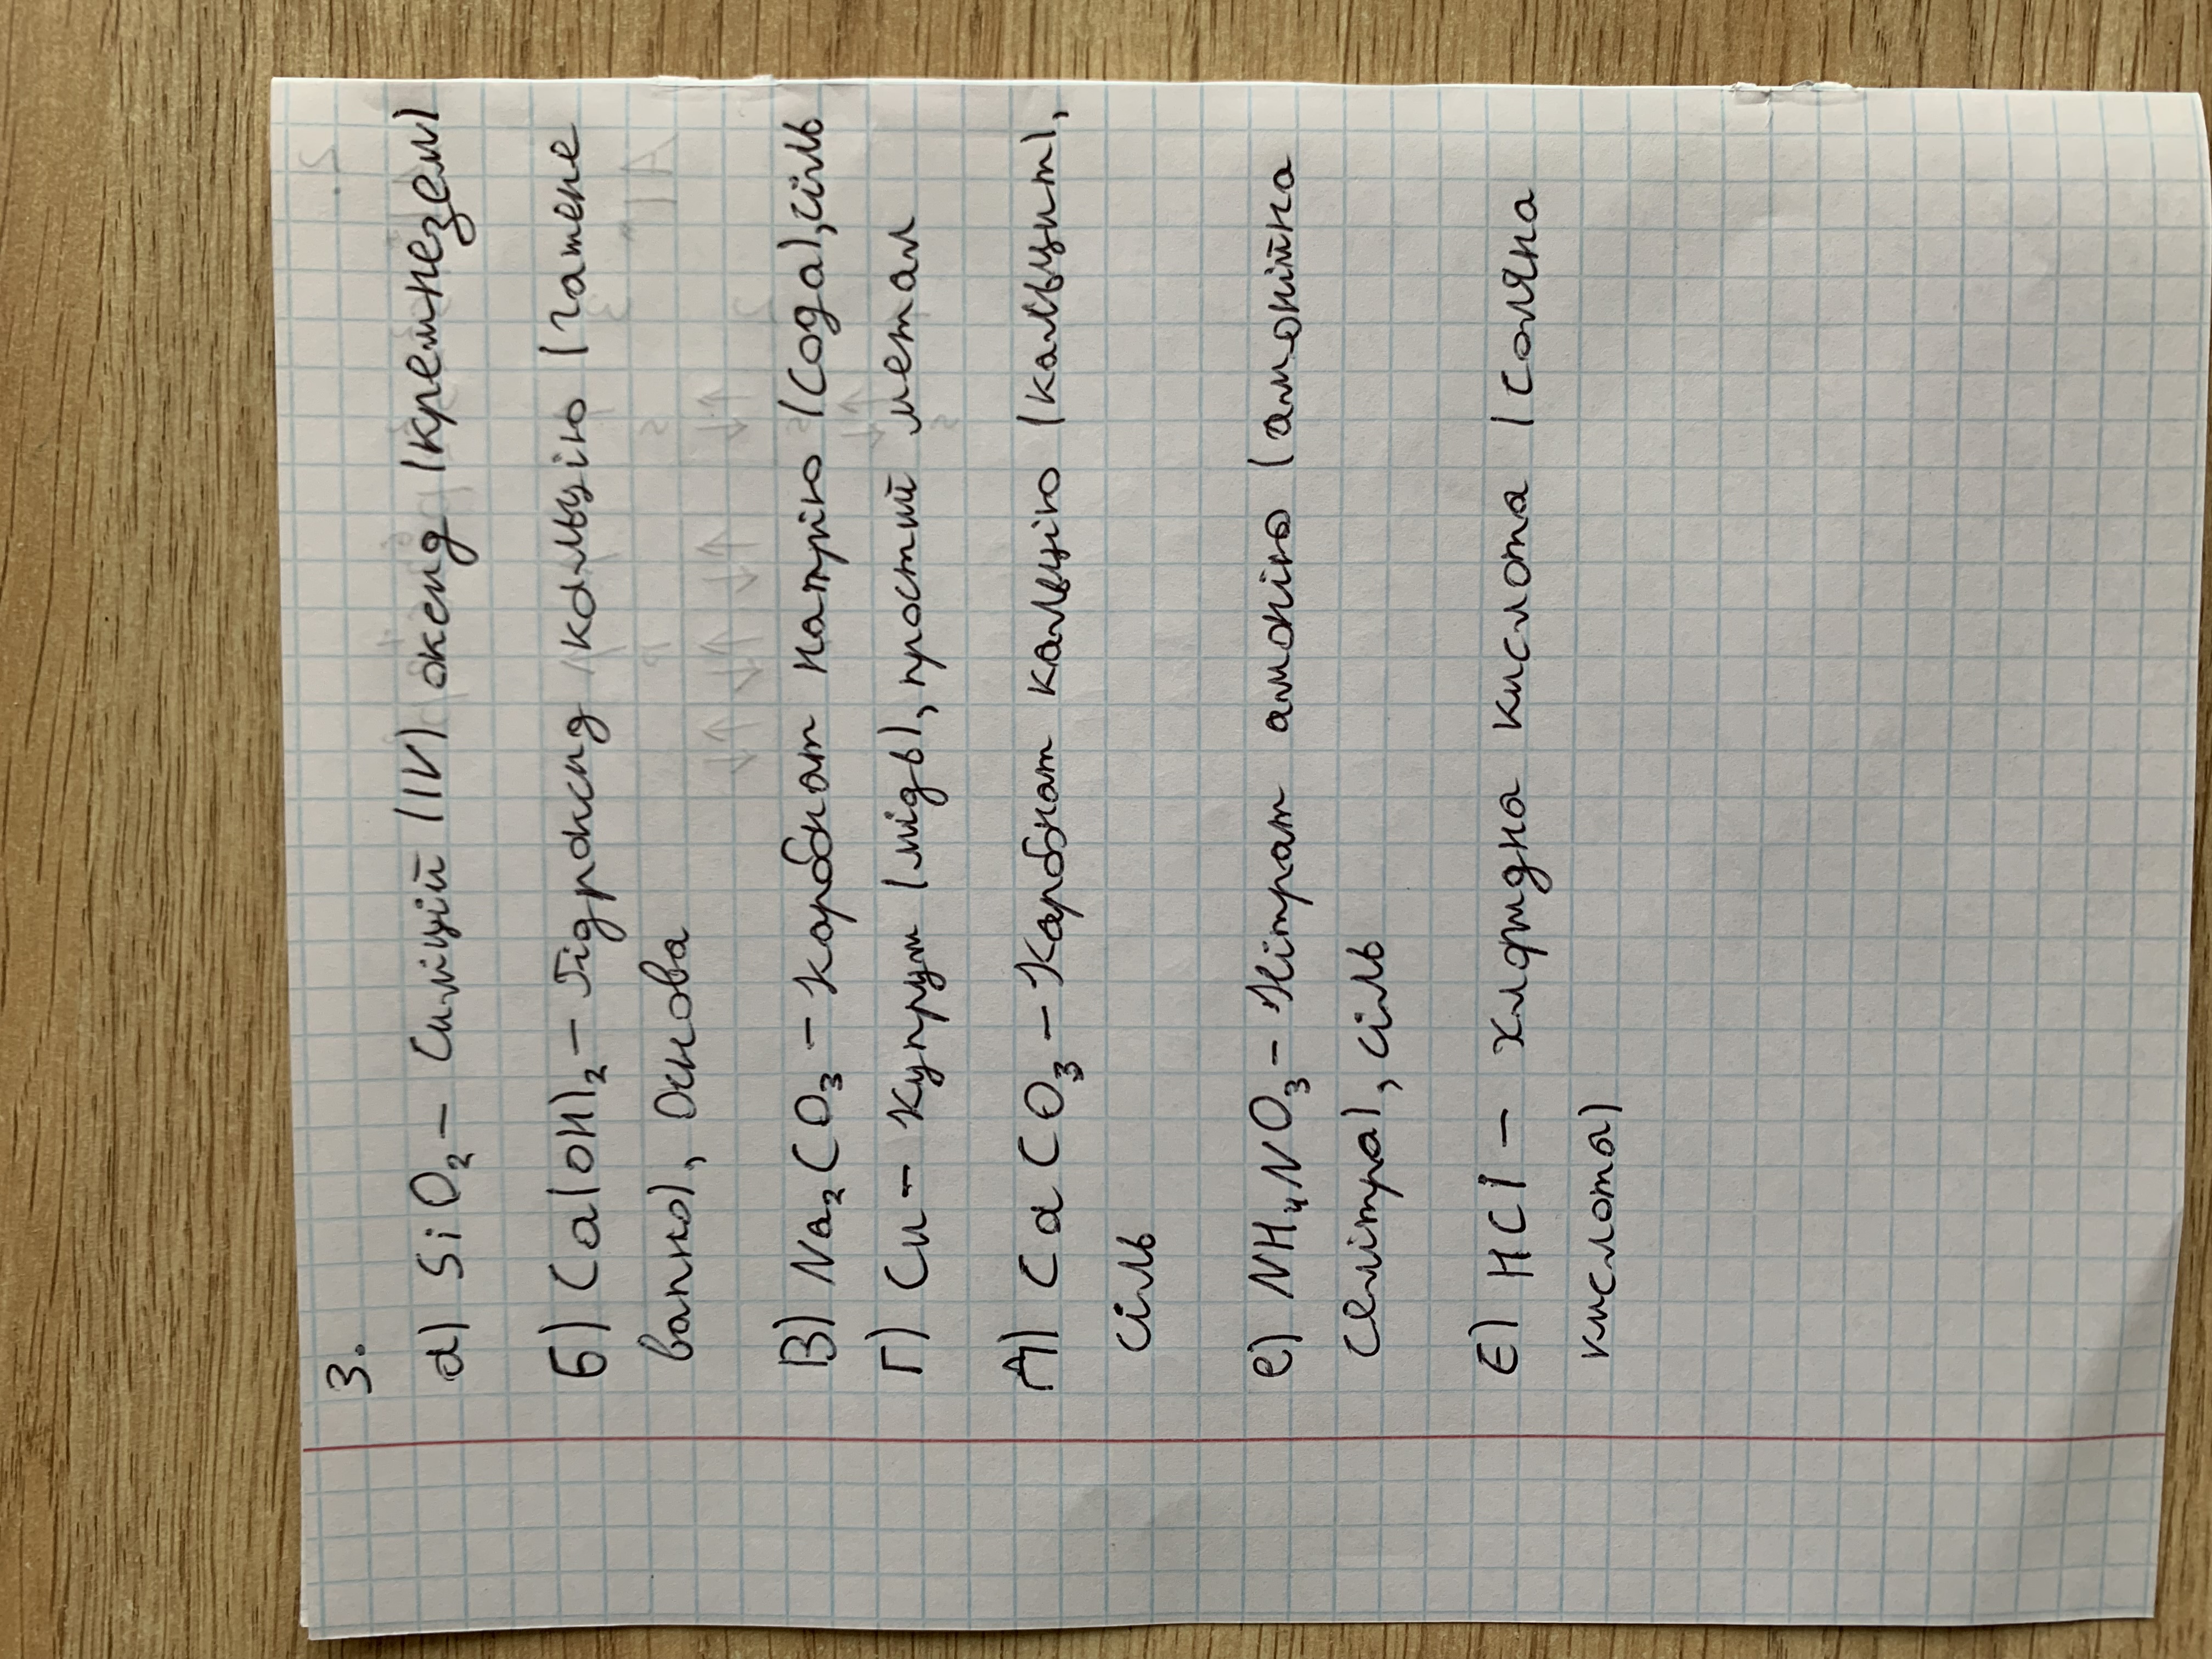 3.
а) SiO₂ - Силіцій (IV) оксид (Кремнезем)
Б) Ca(OH)₂ - Гідроксид кальцію (гашене
вапно), Основа
В) Na₂CO₃ - Карбонат натрію (Сода), сіль
Г) Cu - Купрум (мідь), простий метал
Д) CaCO₃ - Карбонат кальцію (кальцит),
сіль
е) NH₄NO₃ - Нітрат амонію (амонійна
селітра), сіль
Є) HCl - хлоридна кислота (соляна
кислота)